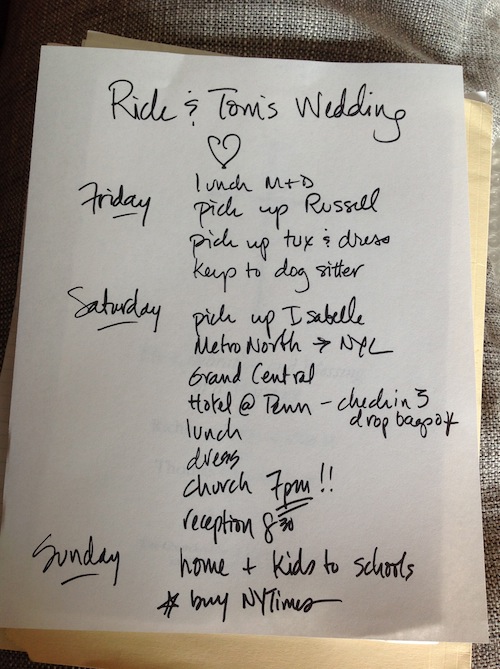 Rick & Tom's Wedding
Friday
lunch M+D
pick up Russell
pick up tux & dress
keys to dog sitter
Saturday
pick up Isabelle
Metro North → NYC
Grand Central
Hotel @ Penn - check in 3
drop bags off
lunch
dress
church 7pm!!
reception 8 30
Sunday
home + kids to schools
* buy NYTimes